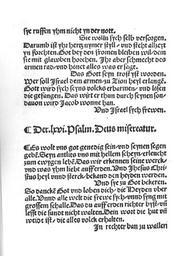 sye ruffen yhm nicht yn der nott.
Sie wolln sych selb versorgen.
Darumb ist yhr herz nymer styll / und stehet alzeyt
erforchten. Got bey den fromen bleiben will / dem
sie mit glawben horchen. Ihr aber schmecht des
armen rad / und honet alles was er sagt.
Das Gott seyn trost yst worden.
Wer soll Israel dem armen zu Zion heyl erlangē.
Gott wird sych seyns volcks erbarmen / und lösen
die gefangen. Das wirt er thun durch seynen son /
dauon wird Jacob wonne han.
Und Israel sych frewen.
¶ Der .lxvi. Psalm. Deus misereatur.
ES wolt uns got genedig sein / und seynen segen
geben. Seyn antlitz uns mit hellem scheyn / erleucht
zum ewigen leben. Das wir erkennen seine werck /
und was yhm lieb auff erden. Und Jhesus Chri-
stus heyl und sterck / bekand den heyden werden.
Und sye zu Got bekeren.
So danckē Got und loben dich / die Heyden uber
all. Und alle welt die frewe sych / und sing mit
grossem schalle. Das du auff erden richter byst / uñ
lest die sund nicht walten. Dein wort die hut und
weide ist / die alles volck erhalten.
In rechter ban zu wallen